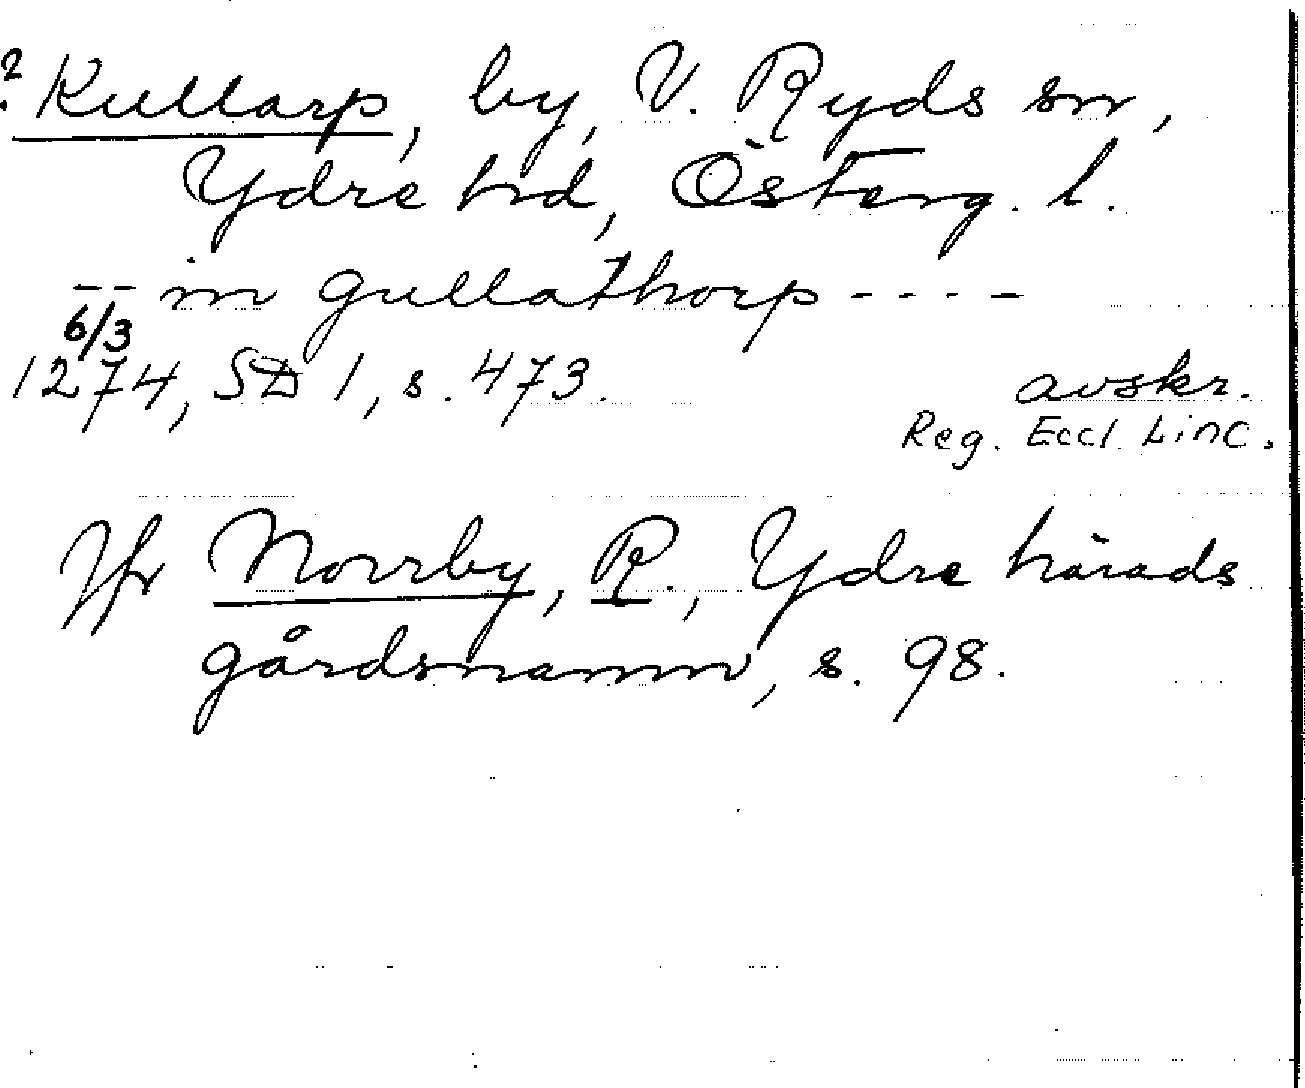 ? Kullarp, by, V. Ryds sn,
Ydre hd, Österg. l.
-- in gullathorp - - - -
6/3
1274, SD 1, s. 473.
avskr.
Reg. Eccl. Linc.
Jfr Norrby, R., Ydre härads
gårdsnamn, s. 98.